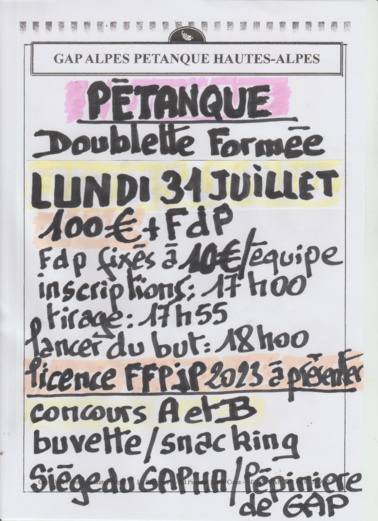 GAP ALPES PETANQUE HAUTES-ALPES
PĒTANQUE
Doublette Formée
LUNDI 31 JUILLET
100€ + FdP
Fdp fixés à 10€/équipe
inscriptions: 17h00
tirage: 17h55
lancer du but: 18h00
licence FFPJP 2023 à présenter
concours A et B
buvette/snacking
Siège du GAPHA/Pépiniere
de GAP